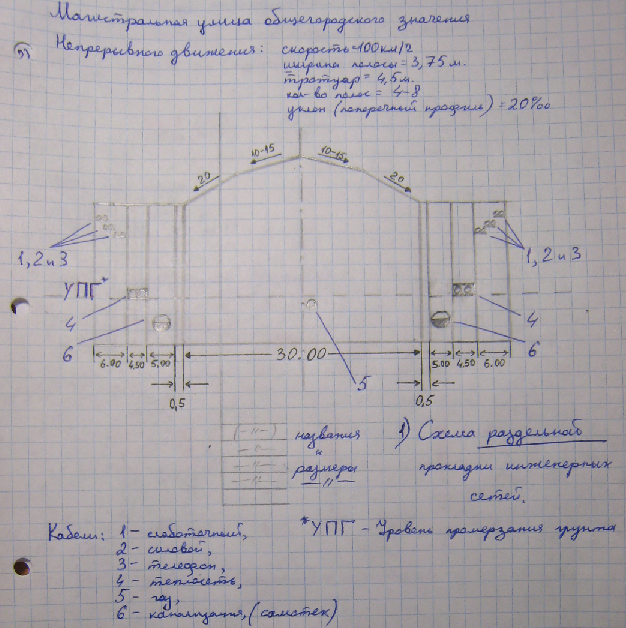 Магистральная улица общегородского значения
Непрерывного движения: скорость=100км/г
ширина полосы = 3,75 м.
тротуар = 4,5 м.
кол-во полос = 4-8
уклон (поперечный профиль) = 20‰
20 10-15 10-15 20
1, 2 и 3 1, 2 и 3
УПГ*
4 4
6 5 6
6.00 4.50 5.00 30.00 5.00 4.50 6.00
0,5 0,5
(-"-) названия
-"- "
-"- размеры
-"- -"-
1) Схема раздельной
прокладки инженерных
сетей.
*УПГ - Уровень промерзания грунта
Кабели: 1 - слаботочный,
2 - силовой,
3 - телефон,
4 - теплосеть,
5 - газ,
6 - канализация, (самотек)